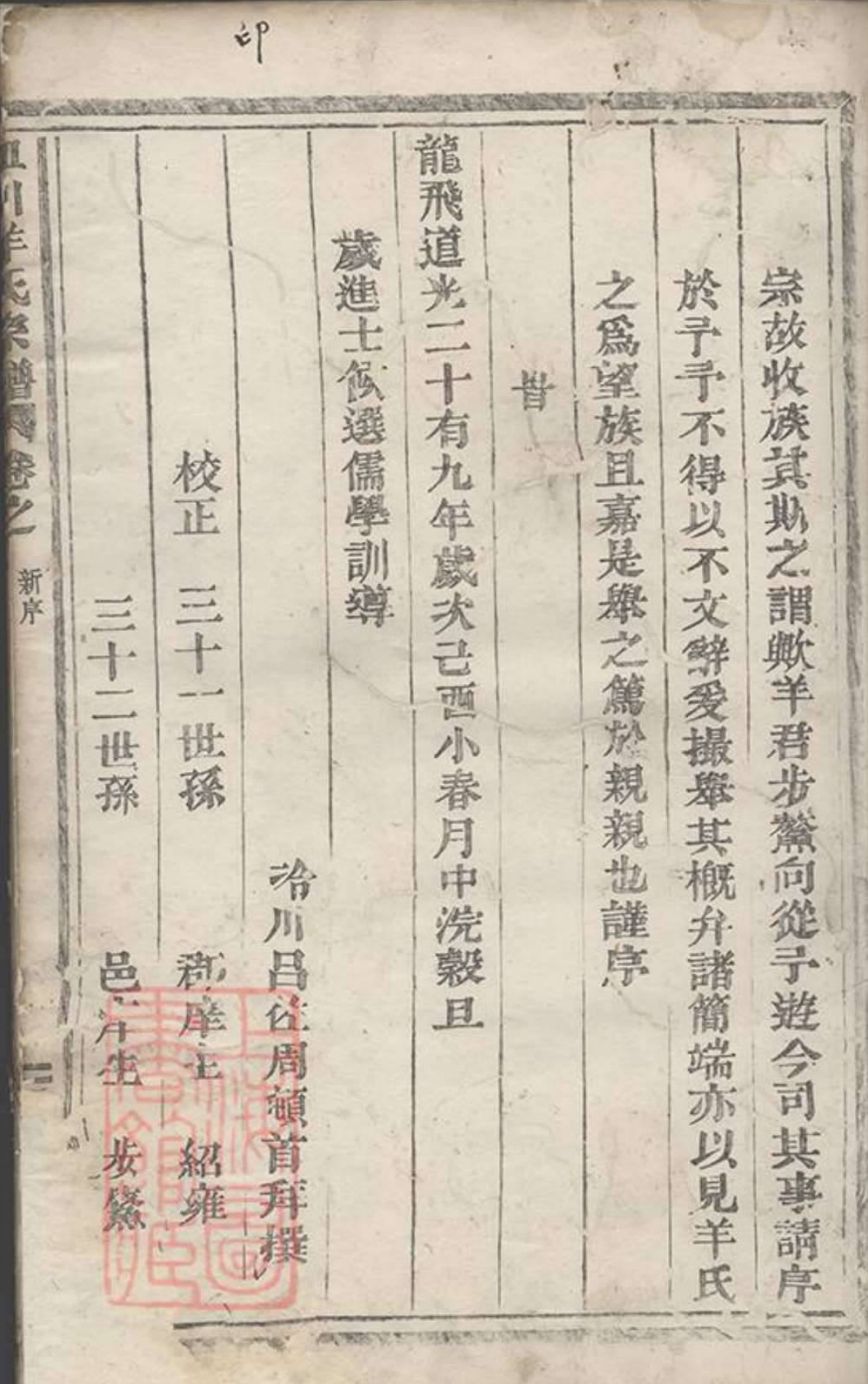 印
宗故收族其斯之謂歟羊君步鰲向從予遊今司其事請序
於予予不得以不文辭爰撮舉其概弁諸簡端亦以見羊氏
之爲望族且嘉是舉之篤於親親也謹序
旹
龍飛道光二十有九年歲次己酉小春月中浣穀旦
歲進士候選儒學訓導
冶川呂佐周頓首拜撰
校正 三十一世孫 郡庠生 紹雍
三十二世孫 邑庠生 步鰲
川羊氏宗譜卷之 新序
上海圖書館藏